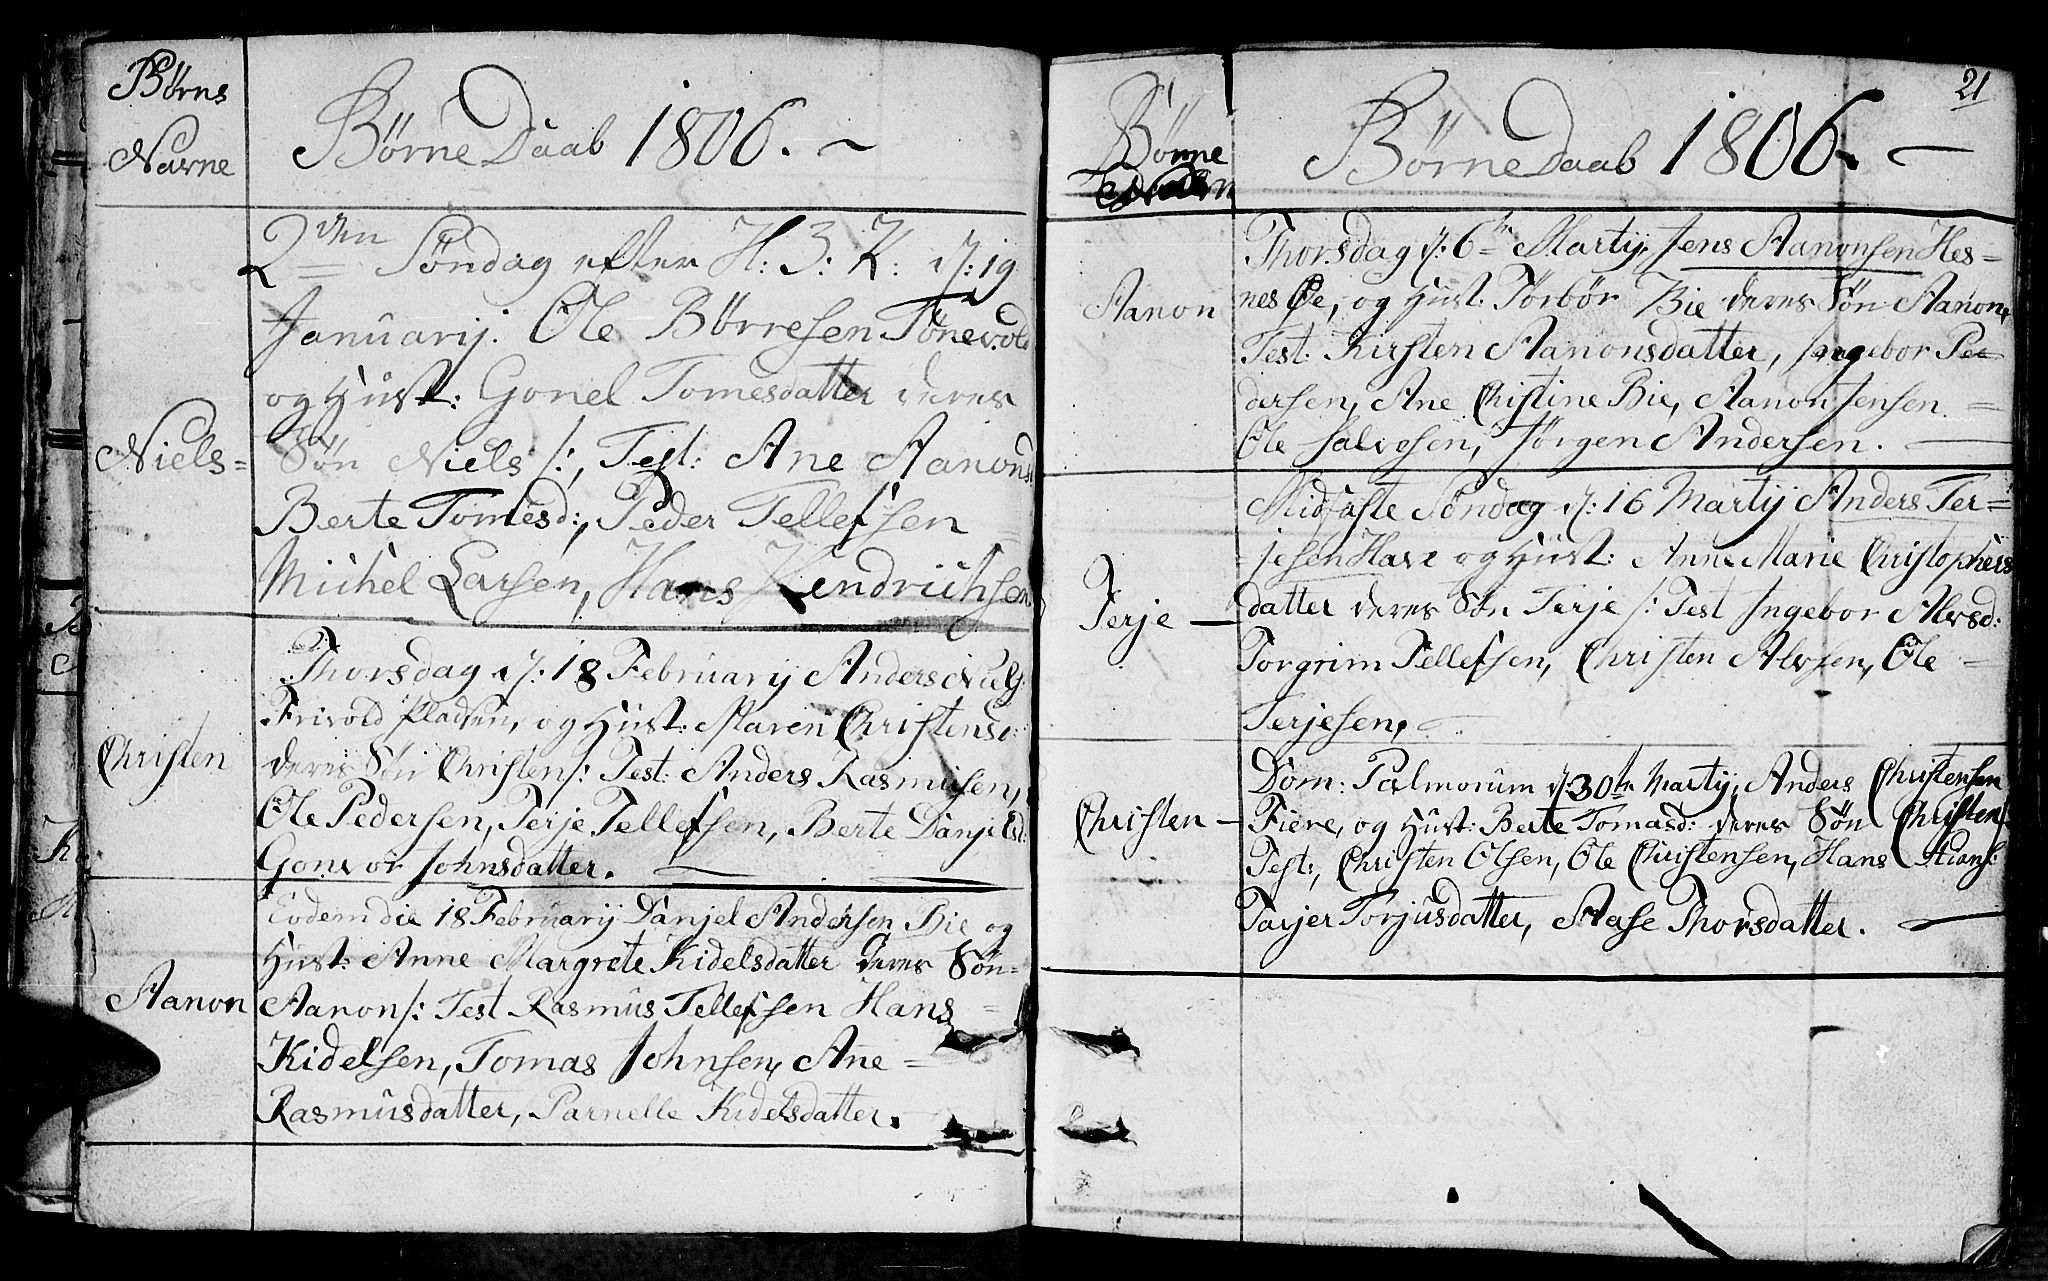 Børns
Navne
Børne Daab 1806.
2den Søndag efter H: 3: K: d: 19
Januarij. Ole Børresen Tønevold
og Hust: Gonel Tomesdatter deres
Niels=
Søn Niels /:, Test: Ane Aanonsd
Berte Tomesd:, Peder Tellefsen
Michel Larsen, Hans Hendrichsen
Thorsdag d: 18 Februarij Anders Niels:
Frivold Pladsen, og Hust: Maren Christensd:
Christen
deres Søn Christen /: Test: Anders Rasmusen,
Ole Pedersen, Terje Tellefsen, Berte Danjelsd:
Gonvor Johnsdatter.
Eodem die 18 Februarij Danjel Andersen Bie og
Hust: Anne Margrete Kidelsdatter deres Søn=
Aanon
Aanon /: Test Rasmus Tellefsen Hans
Kidelsen, Tomas Johnsen, Ane =
Rasmusdatter, Parnelle Kidelsdatter.
21
Børne
Børne Daab 1806.
Thorsdag d: 6te Martij, Jens Aanonsen Hes=
Aanon
nes Øe, og Hust: Tørbør Bie deres Søn Aanon,
Test: Kirsten Aanonsdatter, Ingebor Pe=
dersen, Ane Christine Bie, Aanon Jensen =
Ole Salvesen, Jørgen Andersen.
Midfaste Søndag d: 16 Martij Anders Ter=
jesen Have og Hust: Anne Marie Christophers
Terje
datter deres Søn Terje /: Test Ingebor Alvsd:
Torgrim Tellefsen, Christen Alvsen, Ole =
Terjesen,
Dom: Palmorum d: 30te Martij, Anders Christensen
Christen
Fiere, og Hust: Berte Tomasd: deres Søn Christen
Test:, Christen Olsen, Ole Christensen, Hans
Tarjer Torjusdatter, Aase Thorsdatter.